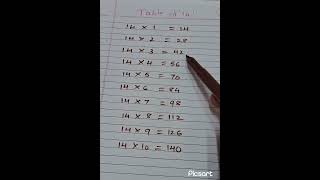 Table of 14
14 × 1 = 14
14 × 2 = 28
14 × 3 = 42
14 × 4 = 56
14 × 5 = 70
14 × 6 = 84
14 × 7 = 98
14 × 8 = 112
14 × 9 = 126
14 × 10 = 140
Picsart